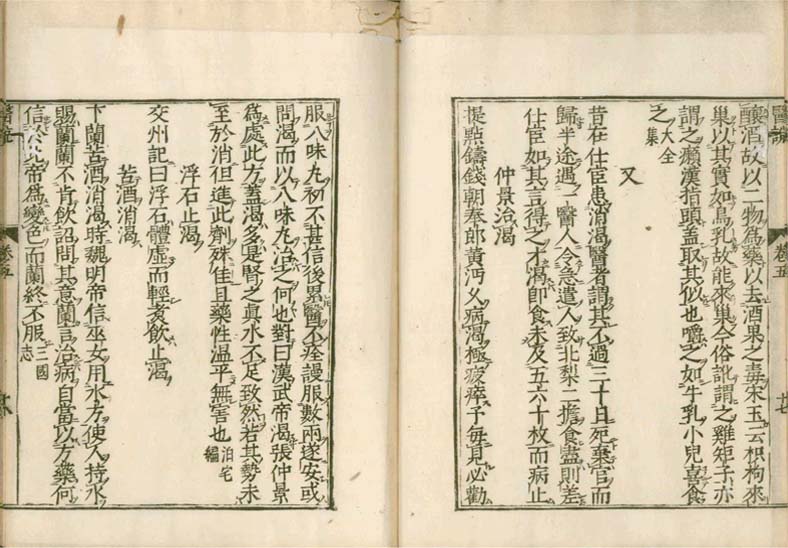 釀酒故以二物爲藥以去酒果之毒宋玉云枳枸來
巢以其實如鳥乳故能來巢今俗訛謂之雞矩子亦
謂之癩漢指頭蓋取其似也嚼之如牛乳小兒喜食
之大全集
又
昔在仕官患消渴醫者謂其不過三十日死棄官而
歸半途遇一醫人令急遣人致北梨二擔食盡則差
仕官如其言得之才渴即食未及五六十枚而病止
仲景治渴
提㸃鑄錢朝奉郎黃沔乂病渴極疲瘁予每見必勸
服八味丸初不甚信後累醫不痊謾服數兩遂安或
問渴而以八味丸治之何也對曰漢武帝渴張仲景
爲處此方蓋渴多是腎之眞水不足致然若其勢未
至於消但進此劑殊佳且藥性温平無害也泊宅編
浮石止渴
交州記曰浮石體虛而輕煑飲止渴
苦酒消渴
卞蘭苦酒消渴時魏明帝信巫女用水方使人持水
賜蘭蘭不肯飲詔問其意蘭言治病自當以方藥何
信於此帝爲變色而蘭終不服三國志
醫說
卷五
醫說
卷五